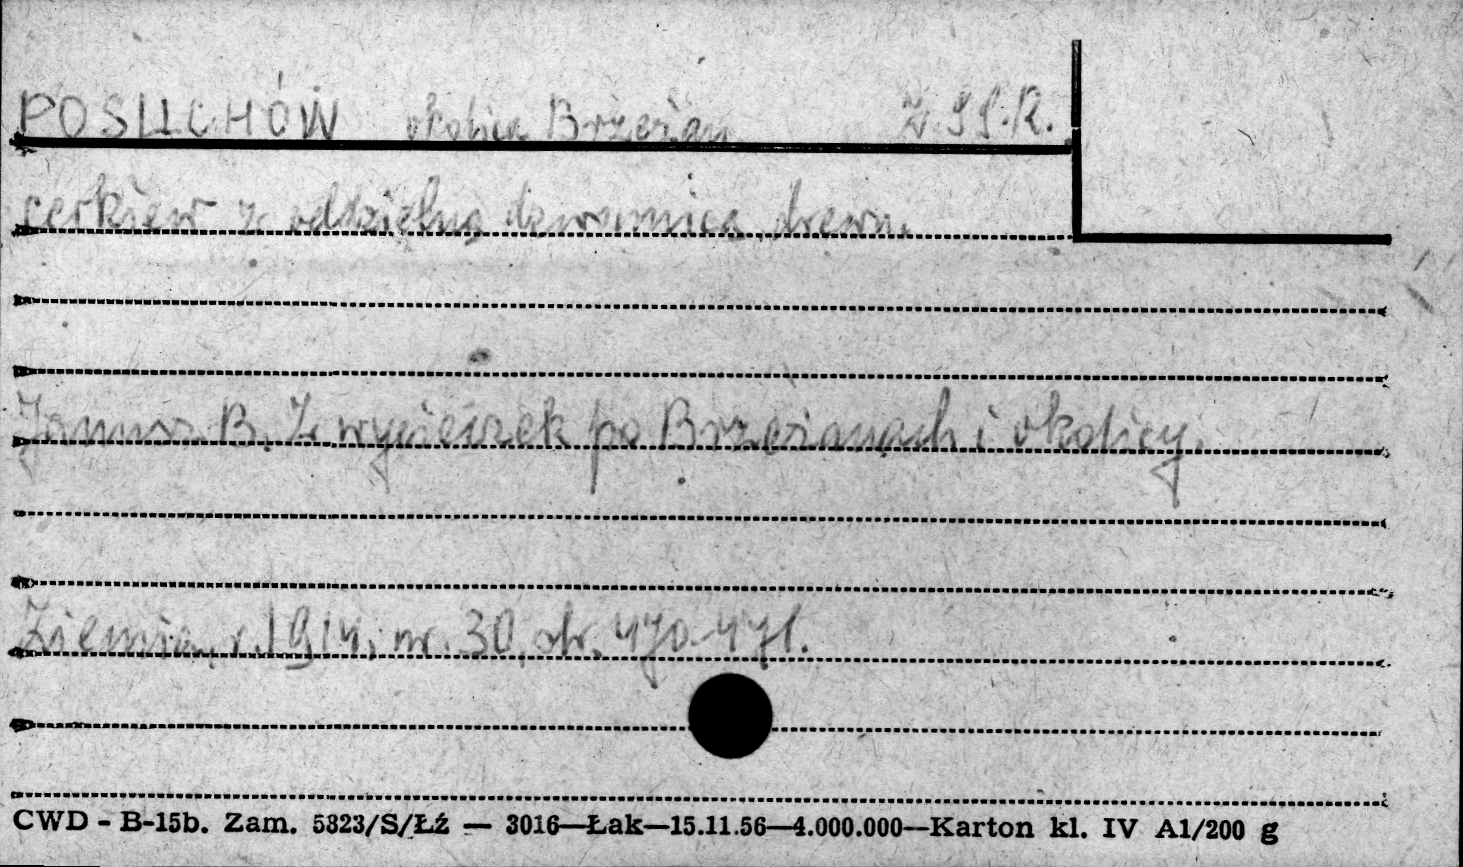 POSUCHÓW okolica Brzeżan Z.S.S.R.
cerkiew z oddzielną dzwonnicą, drewn.
Janusz B. Z wycieczek po Brzeżanach i okolicy.
Ziemia, r. 1914, nr. 30, str. 470-471.
CWD - B-15b. Zam. 5823/S/Łź — 3016—Łak—15.11.56—4.000.000—Karton kl. IV A1/200 g